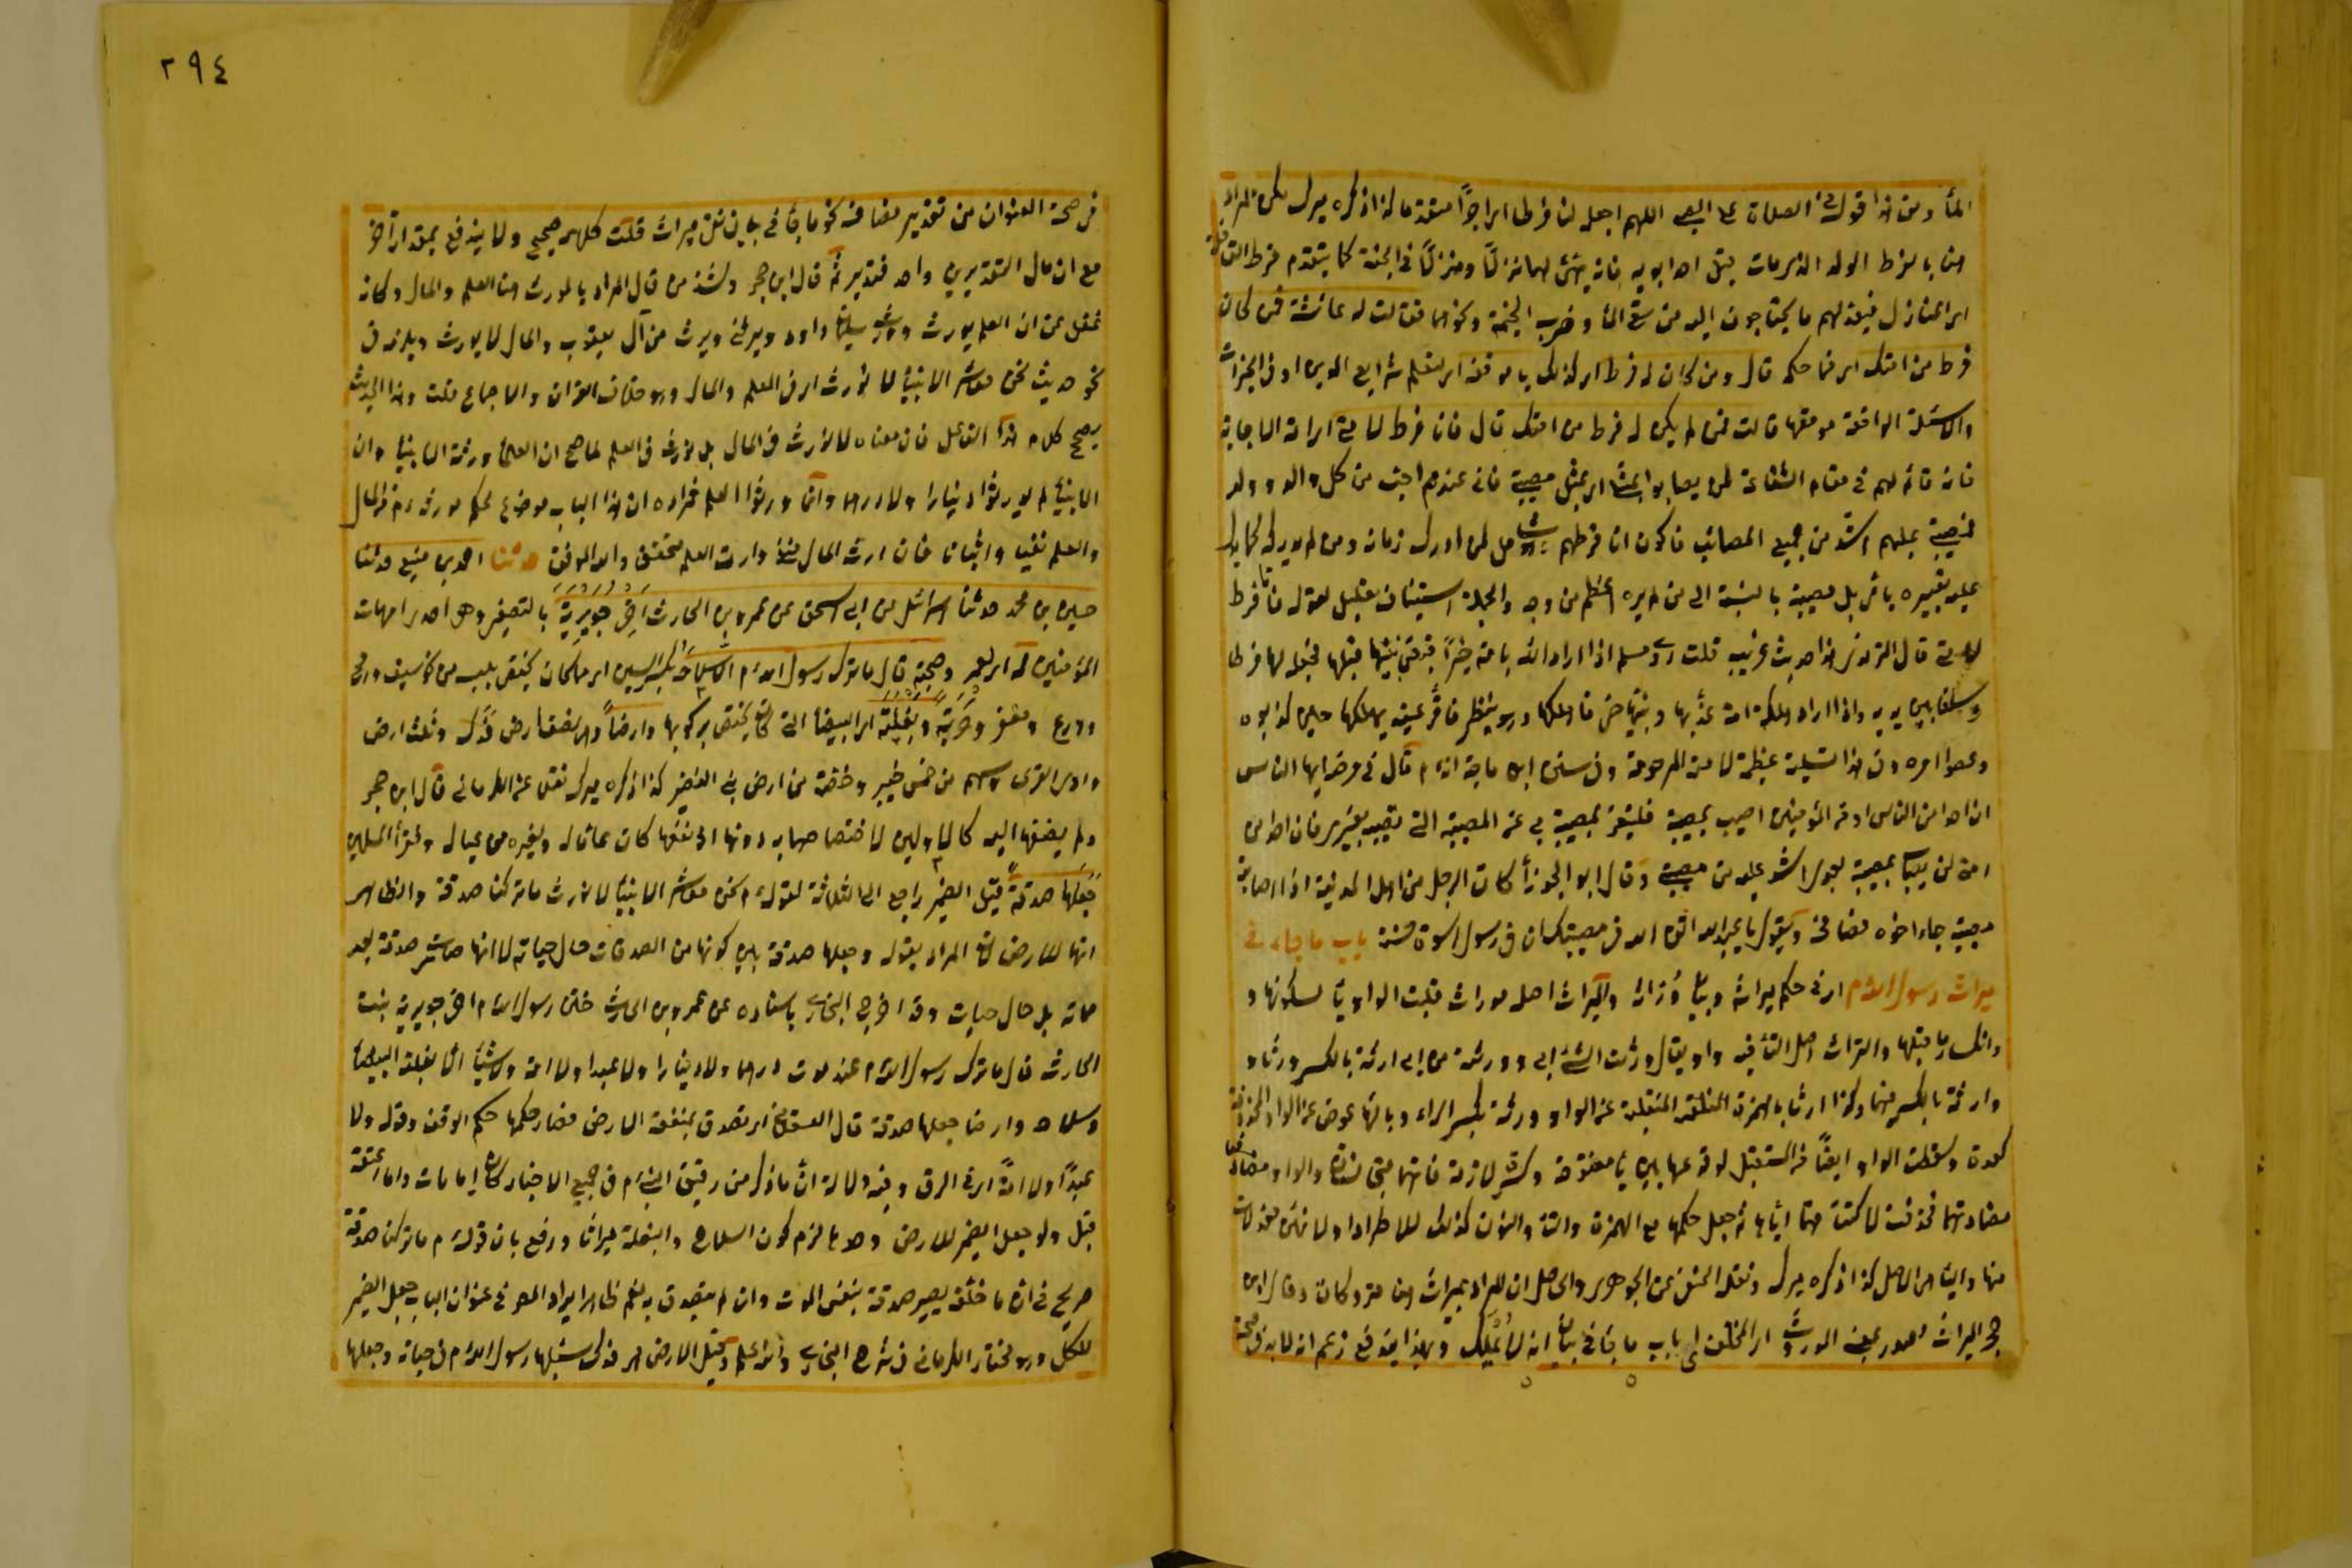 الماء ومن هذا قوله في الصلاة على الصبي اللهم اجعله لنا فرطا اي اجرا متقدما كذا ذكره ميرك لكن المراد
هنا بالفرط الولد الذي مات قبل احد ابويه فانه يهيئ لهما نزلا ومنزلا في الجنة كما يتقدم فرط القافلة
الى المنازل فيعد لهم ما يحتاجون اليه من سقي الماء وضرب الخيمة ونحوهما فقالت له عائشة فمن كان
فرط من امتك اي فما حكمه قال ومن كان له فرط اي كذلك يا موفقة اي لتعلم شرايع الدين او في الخيرات
والاسئلة الواقعة موقعها قالت فمن لم يكن له فرط من امتك قال فانا فرط لامتي اي امة الاجابة
فانه قائم لهم في مقام الشفاعة لن يصابوا بمثلي اي بمثل مصيبتي فاني عندهم احب من كل والد وولد
فمصيبتي عليهم اشد من جميع المصائب فاكون انا فرطهم وهو شامل لمن ادرك زمانه ومن لم يدركه كما يدل
عليه تعبيره بامتي بل مصيبته بالنسبة الى من لم يره اعظم من وجه والجملة استيناف تعليل لقوله فانا فرط
لامتي قال الترمذي هذا حديث غريب قلت روى مسلم اذا اراد الله بامة خيرا قبض نبيها قبلها فجعله لها فرطا
وسلفا بين يديه واذا اراد هلكة امة عذبها ونبيها حي فاهلكها وهو ينظر فاقر عينه بهلكها حين كذبوه
وعصوا امره وفي هذا تسلية عظيمة لامته المرحومة وفي سنن ابن ماجة انه م قال في مرضه ايها الناس
ان احدا من الناس او من المؤمنين اصيب بمصيبة فليتعز بمصيبته بي عن المصيبة التي تصيبه بغيري فان احدا من
امتي لن يصاب بمصيبة بعدي اشد عليه من مصيبتي وقال ابو الجوزاء كان الرجل من اهل المدينة اذا اصابته
مصيبة جاء اخوه فصافحه ويقول يا عبد الله اتق الله فان في رسول الله اسوة حسنة باب ما جاء في
ميراث رسول الله م اي في حكم ميراثه وبيان وراثه والميراث اصله موراث قلبت الواو ياء لسكونها و
وانكسار ما قبلها والتراث اصل التاء فيه واو يقال ورثت الشيء ابي وورثته من ابي ارثه بالكسر ورثا و
وارثة بالكسر فيهما وكذا ارثا بالهمزة المنقلبة عن الواو ورثة بكسر الراء وبالهاء عوض عن الواو المحذوفة
كعدة وسقطت الواو ايضا في المستقبل لوقوعها بين ياء مفتوحة وكسرة لازمة فانهما متجانسان والواو مضادتهما
فحذفت لاكتنافهما اياها ثم جعل حكمها مع الهمزة والتاء والنون كذلك للاطراد اولانهن مبدلات
منها والياء هي الاصل كذا ذكره ميرك ونقله الحنفي عن الجوهري والحاصل ان المراد بميراثه هنا متروكاته وقال ابن
حجر الميراث مصدر بمعنى الموروث اي المخلف اي باب ما جاء في بيان انه لا يملك وبهذا يندفع زعم انه لا بد في صحة

٢٩٤
في صحة العنوان من تقدير مضاف نحو ما جاء في بيان نفي ميراثه قلت كلاهما صحيح ولا يندفع بمقدار آخر
مع ان مآل التقديرين واحد فتدبر ثم قال ابن حجر وشذ من قال المراد بالمورث هنا العلم والمال وكانه
غفل عن ان العلم يورث وورث سليمان داود ويرثني ويرث من آل يعقوب والمال لا يورث ويلزم في
نحو حديث نحن معاشر الانبياء لا نورث اي في العلم والمال وهو خلاف القران والاجماع قلت وهذا الحديث
يصحح كلام هذا القائل فان معناه لا نورث في المال بل نورث في العلم لما صح ان العلماء ورثة الانبياء وان
الانبياء لم يورثوا دينارا ولا درهما وانما ورثوا العلم فمراده ان هذا الباب موضوع لحكم موروثه م في المال
والعلم نفيا واثباتا فان ارث المال منفي وارث العلم محقق والله الموفق حدثنا احمد بن منيع حدثنا
حسين بن محمد حدثنا اسرائيل عن ابي اسحق عن عمرو بن الحارث اخي جويرية بالتصغير وهي احدى امهات
المؤمنين له اي لعمرو صحبة قال ما ترك رسول الله م الا سلاحه بكسر السين اي ما كان يختص بلبسه من نحو سيف ورمح
ودرع ومغفر وحربة وبغلته اي البيضاء التي كان يختص بركوبها وارضا وهي نصف ارض فدك وثلث ارض
وادي القرى وسهم من خمس خيبر وحصته من ارض بني النضير كذا ذكره ميرك نقلا عن الكرماني قال ابن حجر
ولم يضفها اليه كالاولين لاختصاصهما به دونها اذ نفعها كان عاما له ولغيره من عياله وفقراء المسلمين
جعلها صدقة قيل الضمير راجع الى الثلاثة لقوله م نحن معاشر الانبياء لا نورث ما تركنا صدقة والظاهر
انها للارض لان المراد بقوله وجعلها صدقة بيان كونها من الصدقات حال حياته لا انها صارت صدقة بعد
مماته بل حال حياته وقد اخرج البخاري باسناده عن عمرو بن الحارث ختن رسول الله م اخي جويرية بنت
الحارث قال ما ترك رسول الله م عند موته درهما ولا دينارا ولا عبدا ولا امة ولا شيئا الا بغلته البيضاء
وسلاحه وارضا جعلها صدقة قال العسقلاني اي تصدق بمنفعة الارض فصار حكمها حكم الوقف وقوله ولا
عبدا ولا امة اي في الرق وفيه دلالة ان ما ذكر من رقيق النبي م في جميع الاخبار كان اما مات واما اعتقه
قيل ولو جعل الضمير للارض وحدها لزم كون السلاح والبغلة ميراثا ودفع بان قوله م ما تركنا صدقة
صريح في ان ما خلفه يصير صدقة بنفس الموت وان لم يتصدق به نعم ظاهر ايراد المص في عنوان الباب جعل الضمير
للكل وهو مختار الكرماني في شرح البخاري والله اعلم وقيل الارض هي فدك سبلها رسول الله م في حياته وجعلها